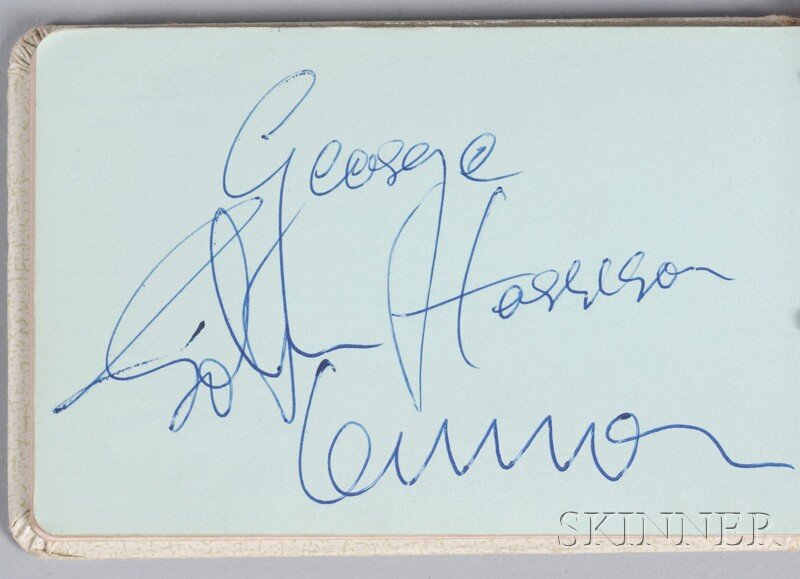 George
Harrison
John
Lennon
SKINNER